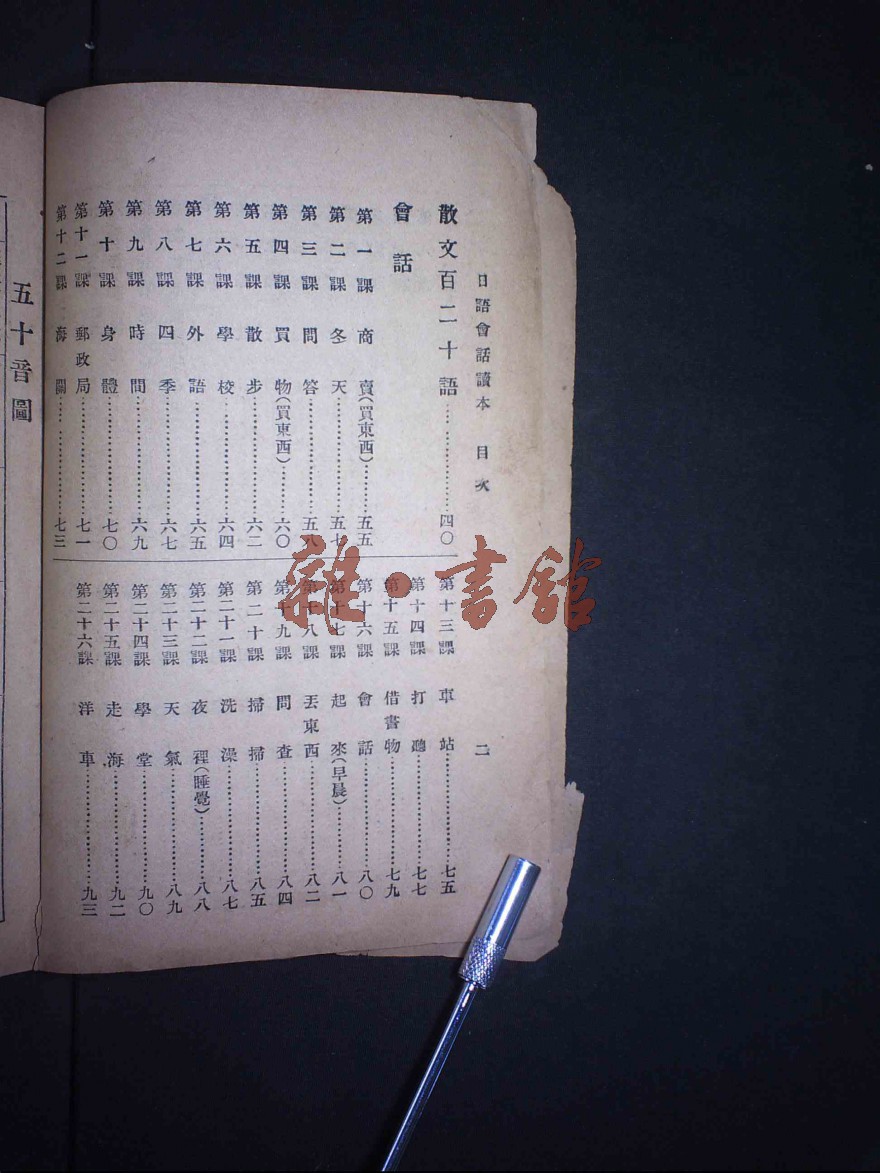 日語會話讀本　目次　二
散文百二十語……四〇
會話
第一課　商賣(買東西)……五五
第二課　冬天……五七
第三課　問答……五八
第四課　買物(買東西)……六〇
第五課　散步……六二
第六課　學校……六四
第七課　外語……六五
第八課　四季……六七
第九課　時間……六九
第十課　身體……七〇
第十一課　郵政局……七一
第十二課　海關……七三
第十三課　車站……七五
第十四課　打聽……七七
第十五課　借書物……七九
第十六課　會話……八〇
第十七課　起來(早晨)……八一
第十八課　丟東西……八二
第十九課　問查……八四
第二十課　掃掃……八五
第二十一課　洗澡……八七
第二十二課　夜裡(睡覺)……八八
第二十三課　天氣……八九
第二十四課　學堂……九〇
第二十五課　走海……九二
第二十六課　洋車……九三
五十音圖
雜·書館